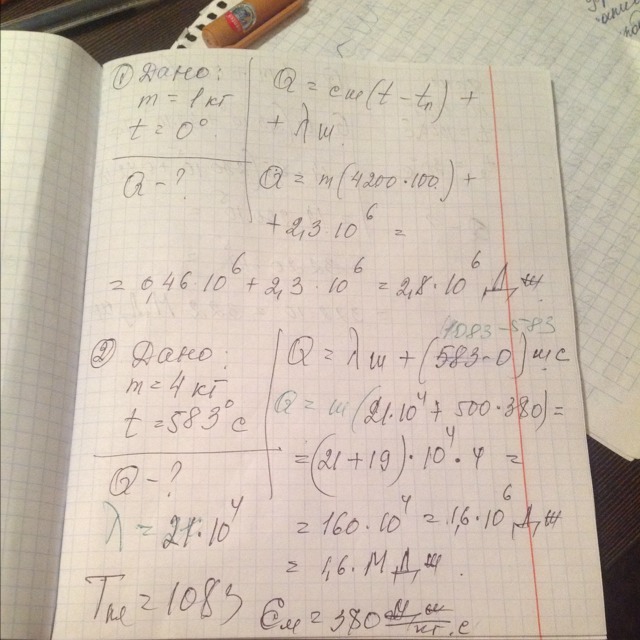 ① Дано:
m = 1 кг
t = 0°
Q - ?
Q = cm(t - tп) +
+ λm
Q = m(4200·100) +
+ 2,3·10⁶ =
= 0,46·10⁶ + 2,3·10⁶ = 2,8·10⁶ Дж
② Дано:
m = 4 кг
t = 583° с
Q - ?
λ = 21·10⁴
Tпл = 1083
1083 - 583
Q = λm + (583-0) mc
Q = m(21·10⁴ + 500·380) =
= (21 + 19)·10⁴·4 =
= 160·10⁴ = 1,6·10⁶ Дж
= 1,6·МДж.
См = 380 Дж/кг·с